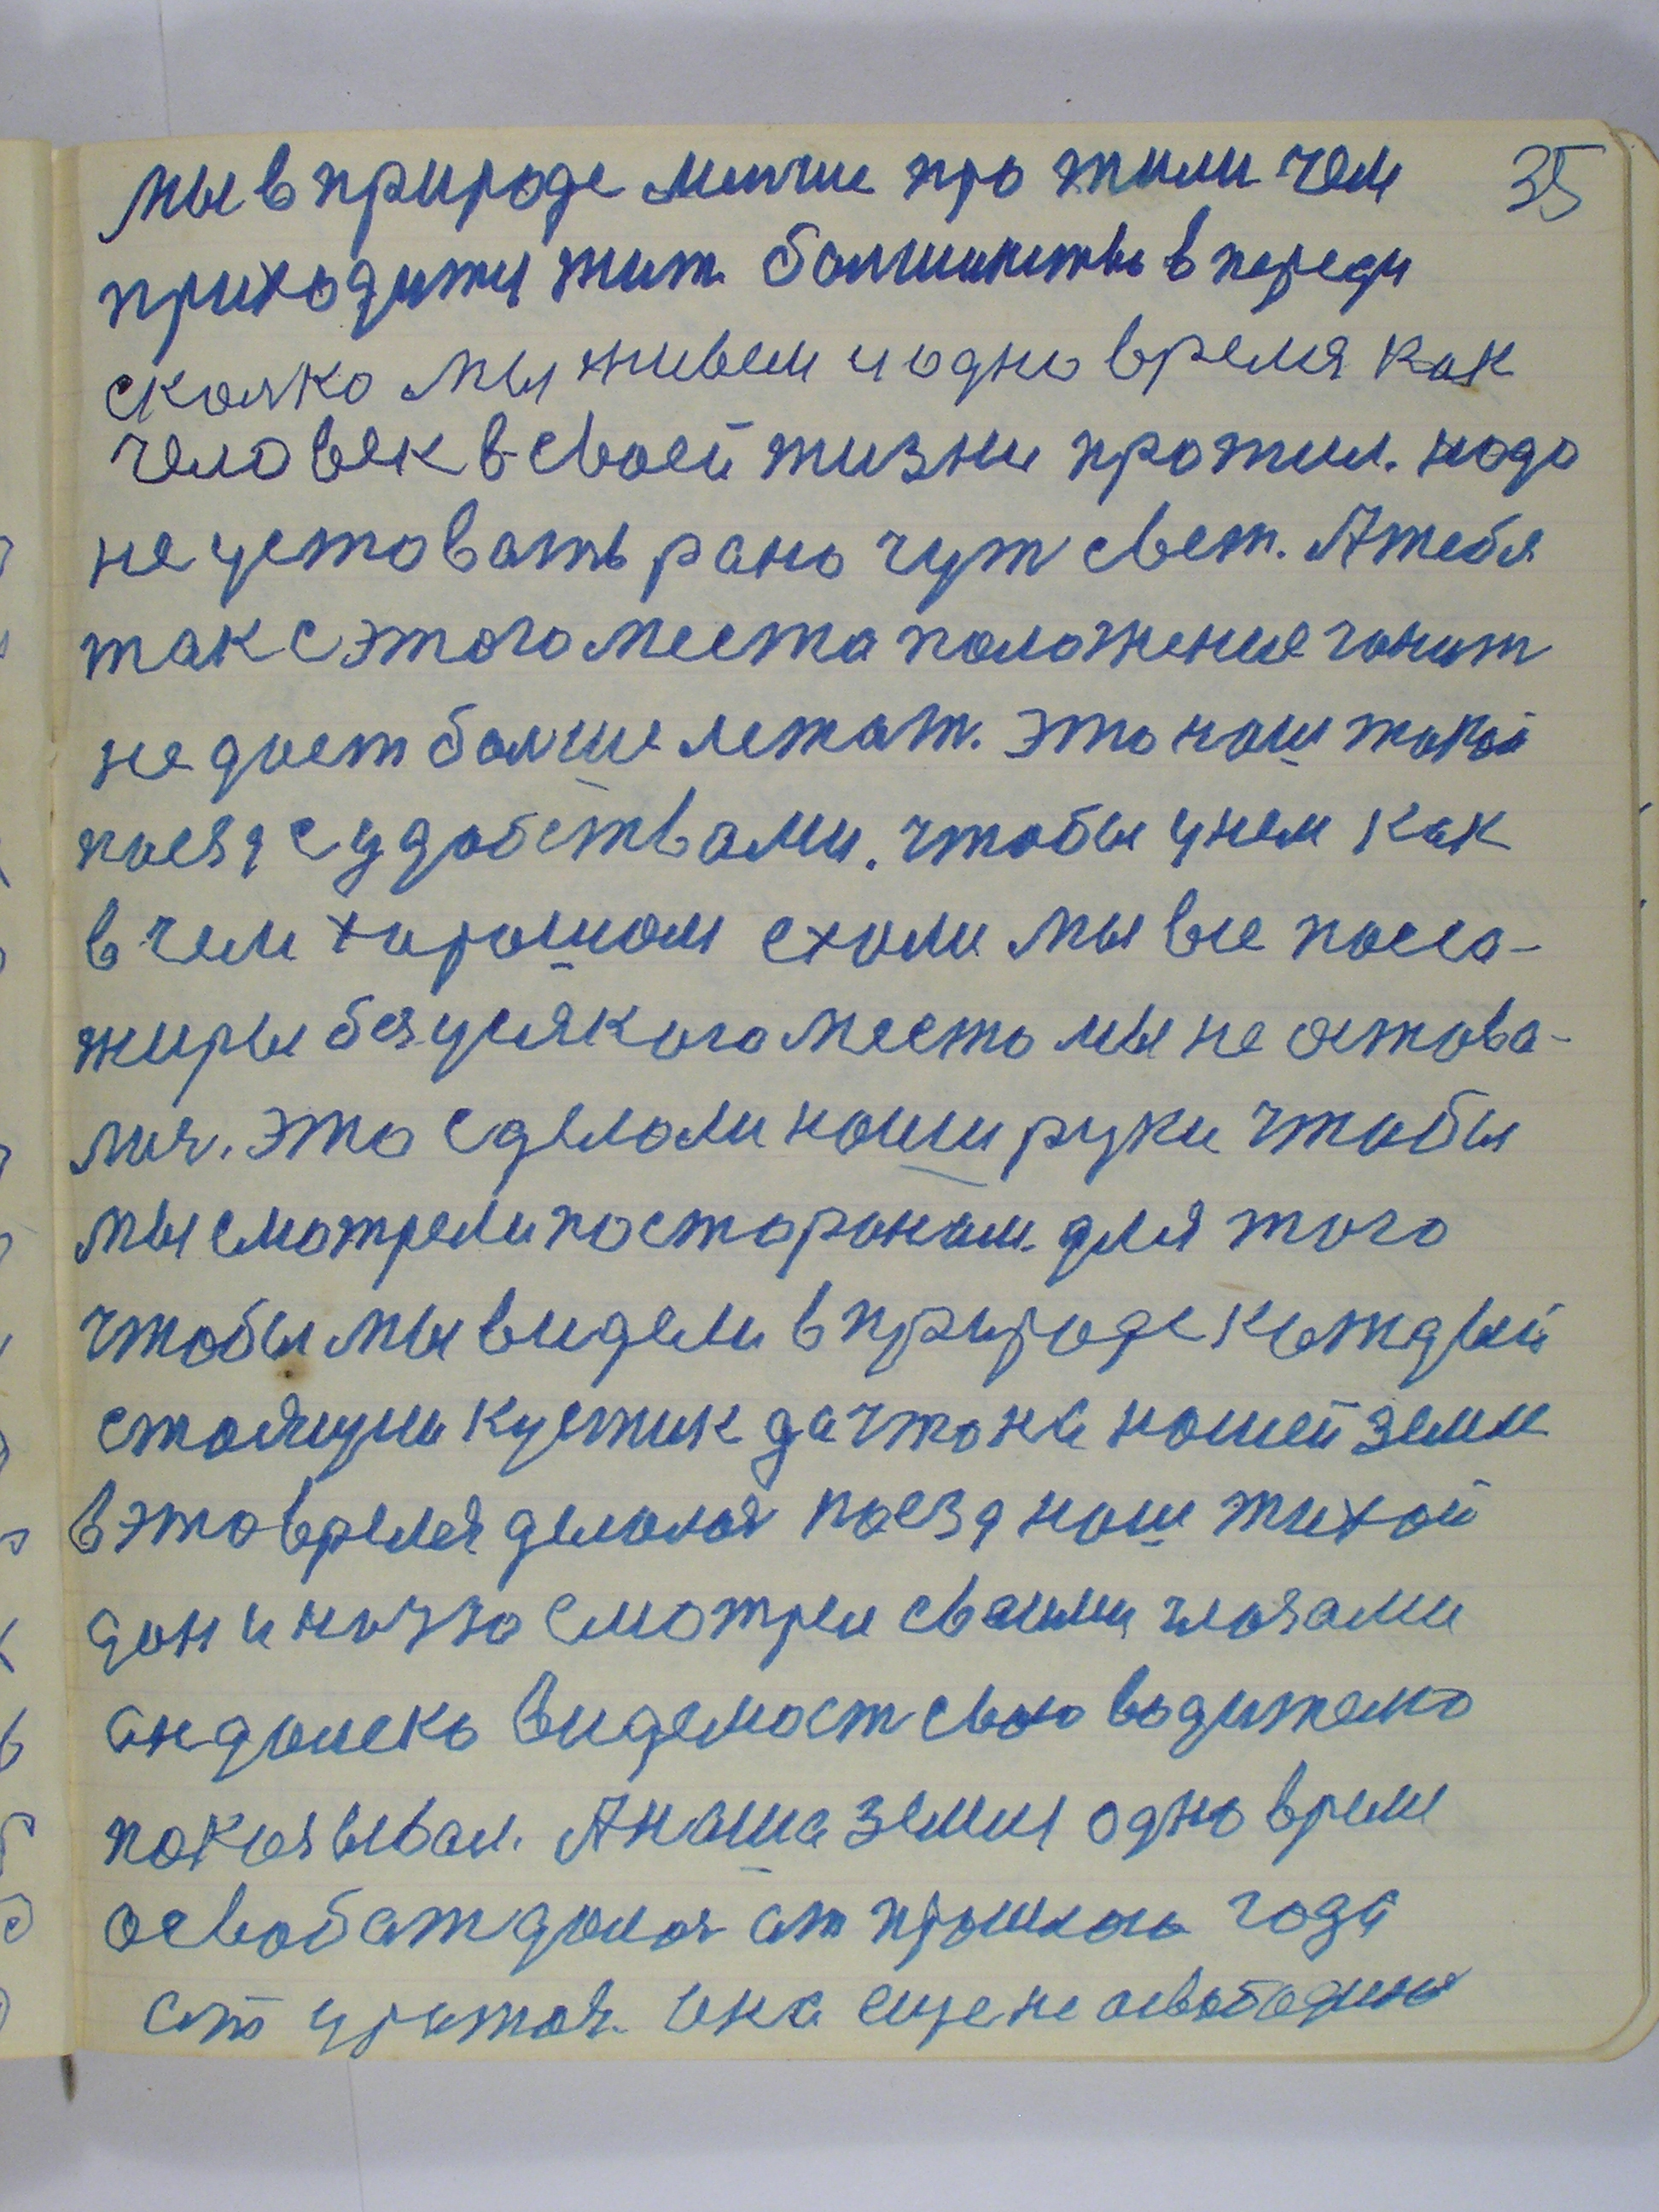 35
мы в природе менше про жили чем
приходится жит. болшинство в переди
сколко мы живем и одно время как
человек в своей жизни прожил. надо
не уставать рано чут свет. А тебя
так с этого места положение гонит
не дает болше лежат. это наш такой
поезд с удобствами. чтобы у нем как
в чем хорошом ехали мы все паса-
жиры без усякого места мы не остова-
лис. это сделали наши руки чтобы
мы смотрели по сторонам. для того
чтобы мы видели в природе каждый
стоящий кустик да что на нашей земле
в это время делалос поезд наш тихой
дон и на ззо смотрел своими глазами
он далеко видемост свою водителю
показывал. А наша земля одно время
освобаждалос от прошлого года
от урожая. она еще не освободилас